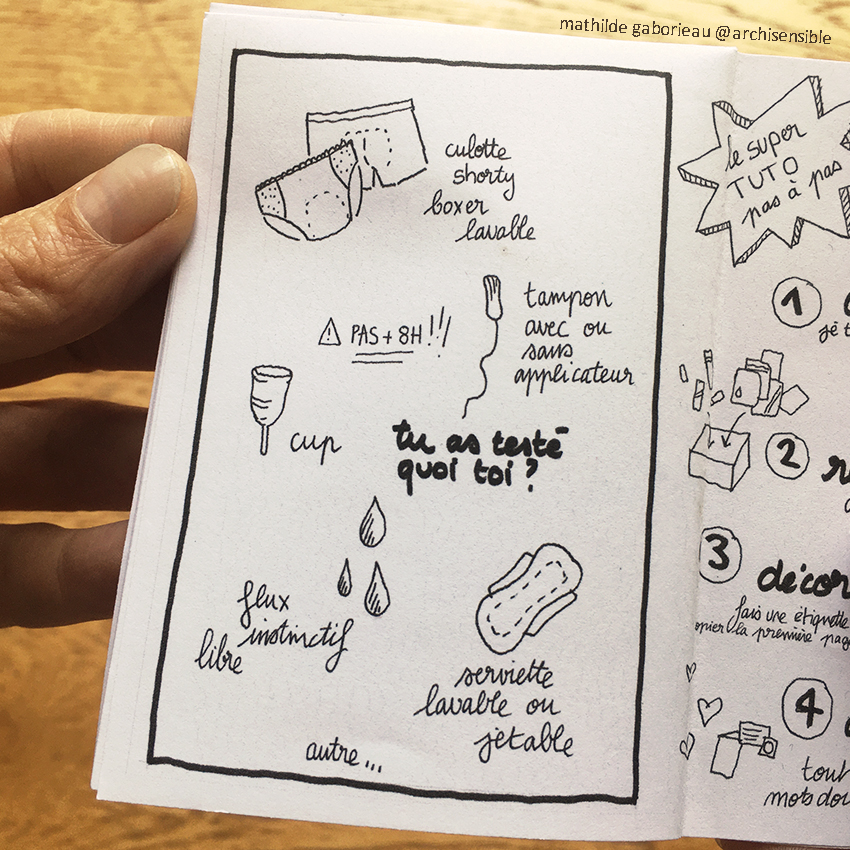 mathilde gaborieau @archisensible
culotte
shorty
boxer
lavable
tampon
avec ou
sans
applicateur
⚠ PAS + 8H !!!
cup
tu as testé
quoi toi ?
flux
instinctif
libre
serviette
lavable ou
jetable
autre...
le super
TUTO
pas à pas
1
2
3
décor
fais une étiquette
la première pag
4
tout
mots dou